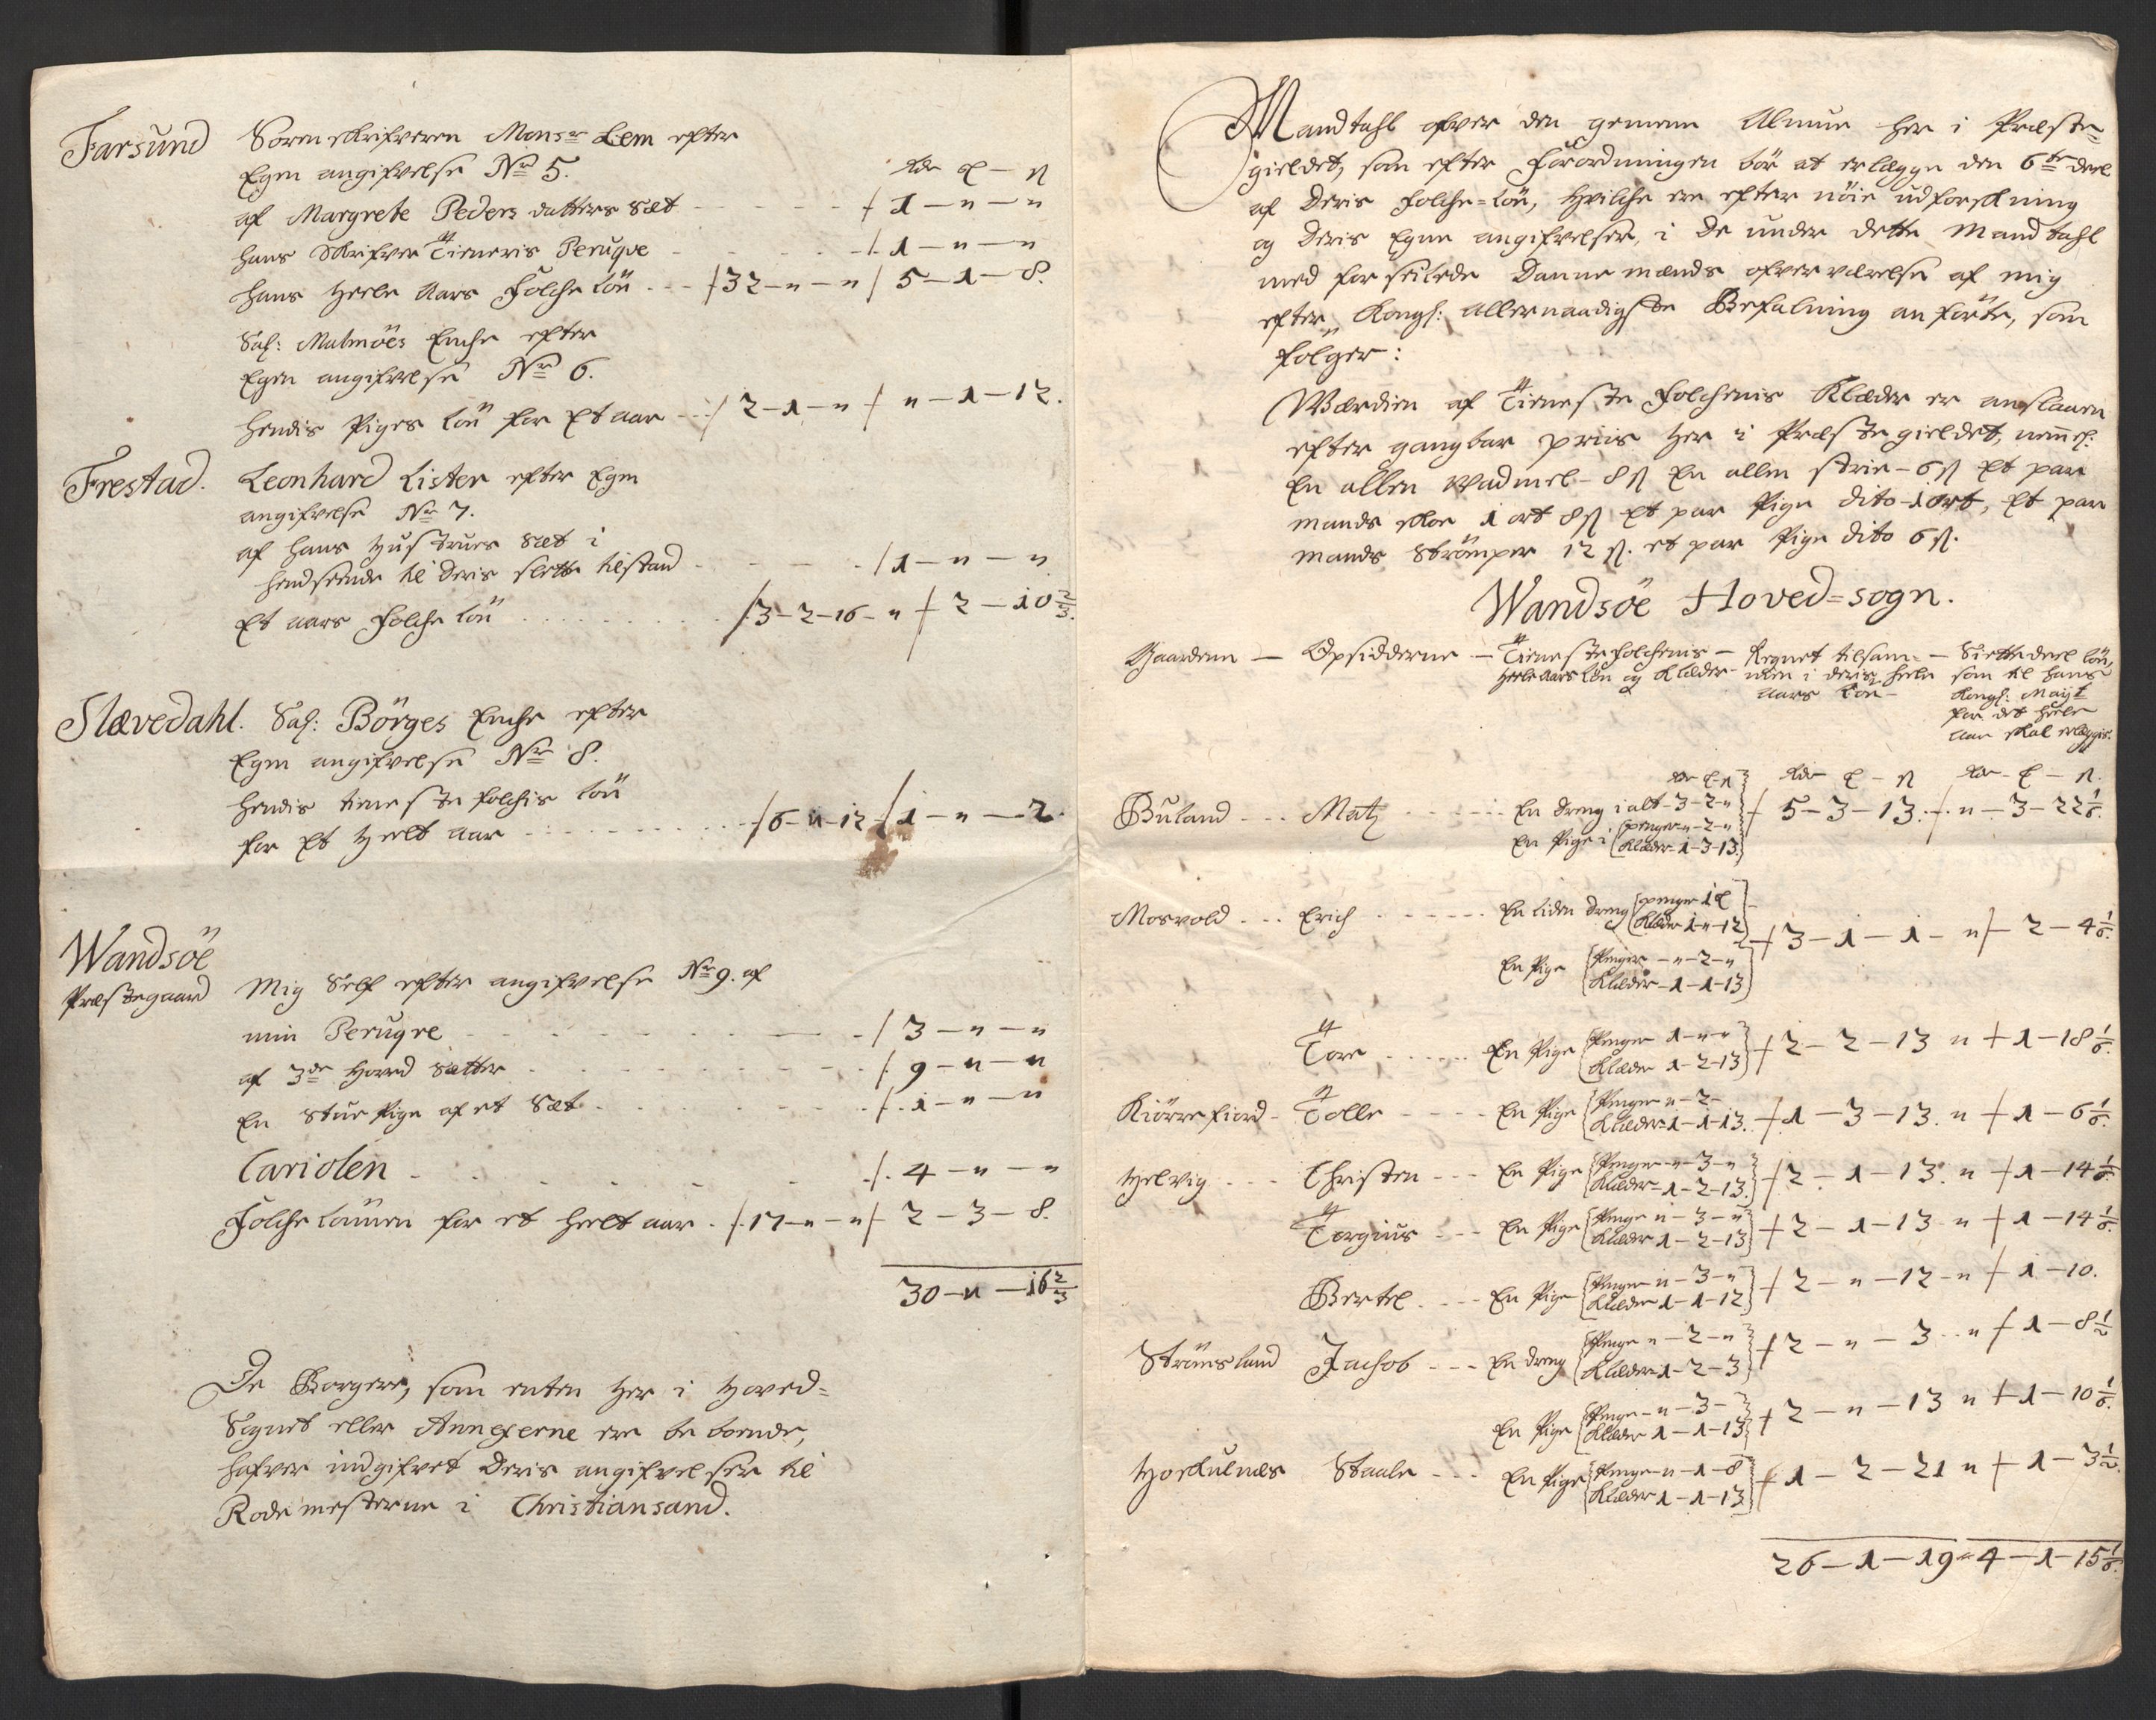 Farsund Sorenskrifveren Monsr Lem efter
Egen angifvelse No 5. Rdr ꝗ – ß
af Margrete Peders datters Sæt - - - - / 1 – „ – „
hans Skrifver Tieneris Peruqve - - - - /. 1 – „ – „
hans heele Aars Folche lön - - - / 32 – „ – „ / 5 – 1 – 8.
Sal: Malmöes Enche efter
Egen angifvelse No 6.
hendis Piges lön for Et aar - - / 2 – 1 – „ / „ – 1 – 12.
Frestad. Leonhard Lister efter Egen
angifvelse No 7.
af hans Hustrues Sæt i
henseende til deris slette tilstand - - - - / 1 – „ – „
Et aars Folche lön . . . . . . /. 3 – 2 – 16 – „ / 2 – 10 2/3.
Slævedahl. Sal: Börges Enche efter
Egen angifvelse No 8.
hendis tieneste folchis lön
for Et heelt aar - - - - - - / 6 – „ – 12 / 1 – „ – 2.
Wandsöe
Præstegaard Mig Self efter angifvelse No 9. af
min Peruqve - - - - - - / 3 – „ – „
af 3de Hoved Sætter - - - - - /. 9 – „ – „
En Stue Pige af et Sæt - - - - - /. 1 – „ – „
Cariolen - - - - - - /. 4 – „ – „
Folche lönnen for et heelt aar . /. 17 – „ – „ / 2 – 3 – 8.
30 – „ – 16 2/3
De Borgere, som enten her i Hoved=
Sognet eller Annexerne ere be boende,
hafver indgifvet deris angifvelser til
Rodemesterne i Christiansand.
Mandtahl ofver den gemene Almue her i Præste=
gieldet, som efter Forordningen bör at erlægge den 6te deel
af deris Folche=lön, hvilche ere efter nöie udforskning
og deris Egne angifvelser, i de under dette Mandtahl
med forseilede Dannemænds ofverværelse af mig
efter Kongl: Allernaadigste Befalning anförte, som
folger:
Wærdien af Tieneste Folchenis Klæder er anslauen
efter gangbar priis her i Præstegieldet, neml:
En allen Wadmel – 8 ß En allen Strie – 6 ß Et par
mands skoe 1 ort 8 ß Et par Pige dito – 1 ort, Et par
mands Strömper 12 ß. et par Pige dito 6 ß.
Wandsöe Hoved=sogn.
Gaardene — Opsidderne — Tienestefolchenis — Regnet tilsam= — Siette deel lön,
heele Aars lön og Klæder men i deris heele som til hans
Aars lön – Kongl: Mayt
for det heele
aar skal erlæggis.
Rdr ꝗ – ß Rdr ꝗ – ß Rdr – ꝗ – ß.
Buland - - - Matz - - - - En dreng i alt – 3 – 2 – „ / 5 – 3 – 13. / „ – 3 – 22 1/6.
En Pige i penger „ – 2 – „
Klæder – 1 – 3 – 13
Mosvold - - - Erich - - - - - En liden dreng penger 1 ꝗ
Klæder 1 – „ – 12 / 3 – 1 – 1 – „ / 2 – 4 1/6.
En Pige Penger – „ – 2 – „
Klæder – 1 – 1 – 13
Tore - - - - - En Pige Penger 1 – „ – „
Klæder 1 – 2 – 13 / 2 – 2 – 13 „ / 1 – 18 1/6.
Kiörrefiord – Tolle - - - - En Pige Penger „ – 2 –
Klæder 1 – 1 – 13. / 1 – 3 – 13. „ / 1 – 6 1/6.
Helvig - - - Christen - - - En Pige Penger – „ – 3 – „
Klæder – 1 – 2 – 13. / 2 – 1 – 13. „ / 1 – 14 1/6.
Torgius - - - En Pige Penger „ – 3 – „
Klæder 1 – 2 – 13 / 2 – 1 – 13 „ / 1 – 14 1/6.
Bertel - - - En Pige Penger „ – 3 – „
Klæder 1 – 1 – 12 / 2 – „ – 12 – „ / 1 – 10.
Strömsland Jachob - - - En dreng Penge „ – 2 – „
Klæder 1 – 2 – 3 / 2 – „ – 3 . . „ / 1 – 8 1/2
En Pige Penge – „ – 3 –
Klæder 1 – 1 – 13 / 2 – „ – 13 „ / 1 – 10 1/6.
Hoskulnæs Staale - - - En Pige Penge – „ – 1 – 8
Klæder 1 – 1 – 13 / 1 – 2 – 21 „ / 1 – 3 1/2.
26 – 1 – 19 – 4 – 1 – 15 1/6.